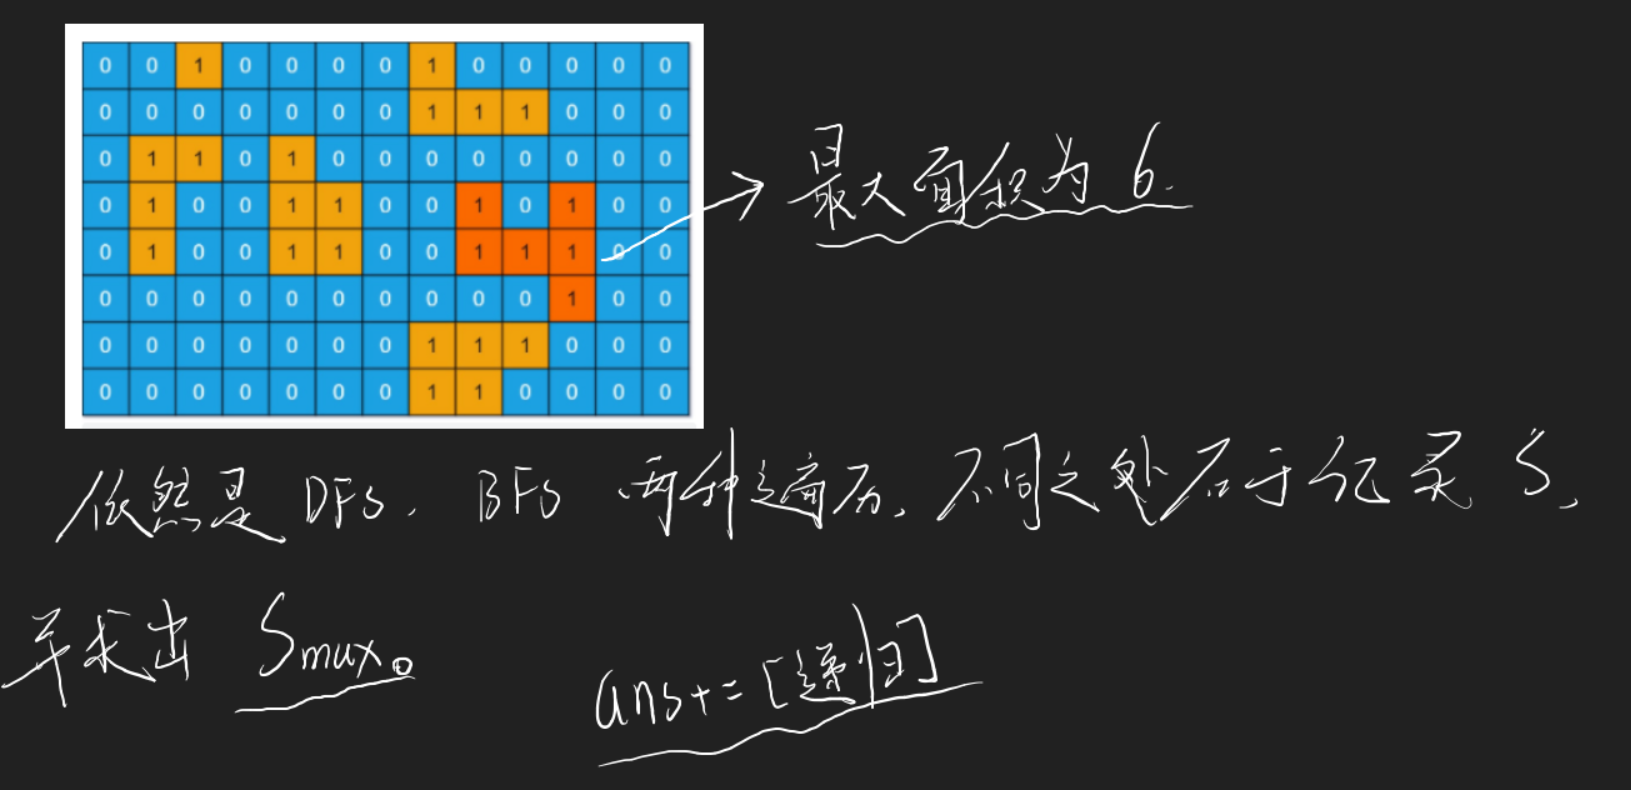 0 0 1 0 0 0 0 1 0 0 0 0 0
0 0 0 0 0 0 0 1 1 1 0 0 0
0 1 1 0 1 0 0 0 0 0 0 0 0
0 1 0 0 1 1 0 0 1 0 1 0 0
0 1 0 0 1 1 0 0 1 1 1 0 0
0 0 0 0 0 0 0 0 0 0 1 0 0
0 0 0 0 0 0 0 1 1 1 0 0 0
0 0 0 0 0 0 0 1 1 0 0 0 0
最大面积为 6.
依然是 DFS, BFS 两种遍历, 不同之处在于记录 S,
并求出 Smax。
ans+=[递归]